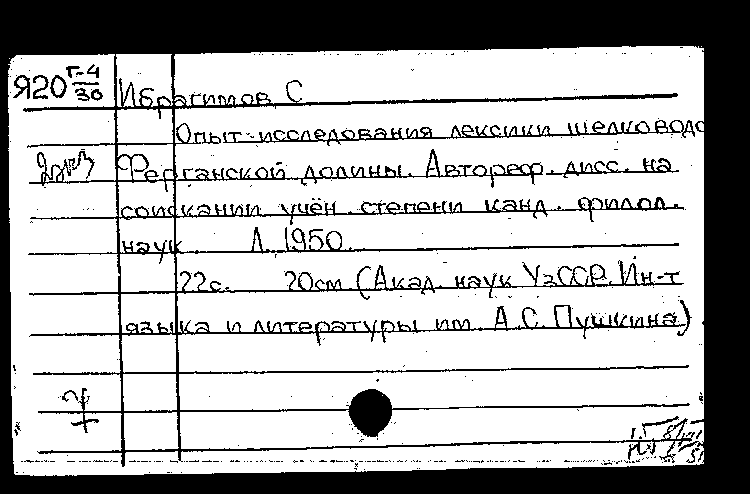 Я20 Г-4/30
Ибрагимов С
Опыт исследования лексики шелководо
Ферганской долины. Автореф. дисс. на
соискании учён. степени канд. филол.
наук. Л. 1950.
22с. 20см (Акад. наук УзССР. Ин-т
языка и литературы им. А.С. Пушкина).